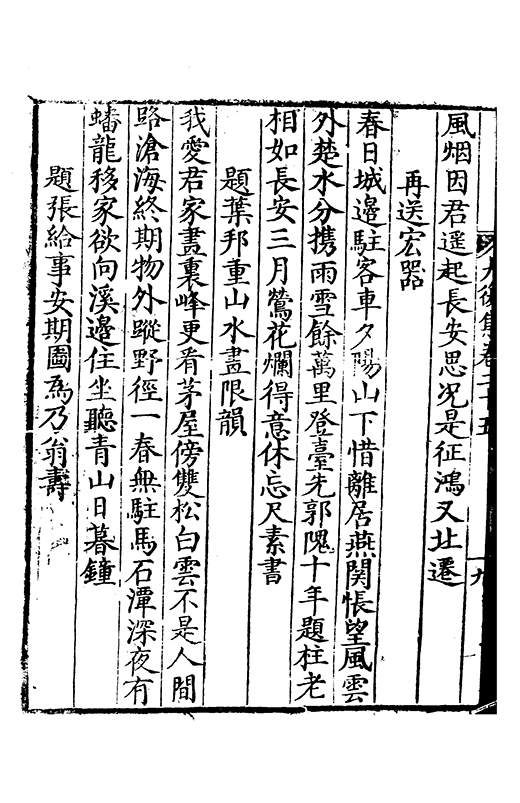 風烟因君遥起長安思况是征鴻又北遷
再送宏器
春日城邉駐客車夕陽山下惜離居燕関悵望風雲
外楚水分携雨雪餘萬里登臺先郭隗十年題柱老
相如長安三月鶯花爛得意休忘尺素書
題葉邦重山水畫限韻
我愛君家畫裏峰更看茅屋傍雙松白雲不是人間
路滄海終期物外蹤野徑一春無駐馬石潭深夜有
蟠龍移家欲向溪邉住坐聽青山日暮鐘
題張給事安期圖為乃翁壽